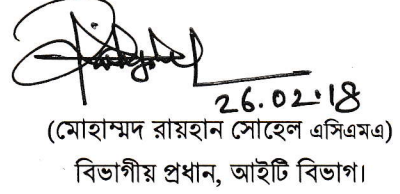 26.02.18
(মোহাম্মদ রায়হান সোহেল এসিএমএ)
বিভাগীয় প্রধান, আইটি বিভাগ।